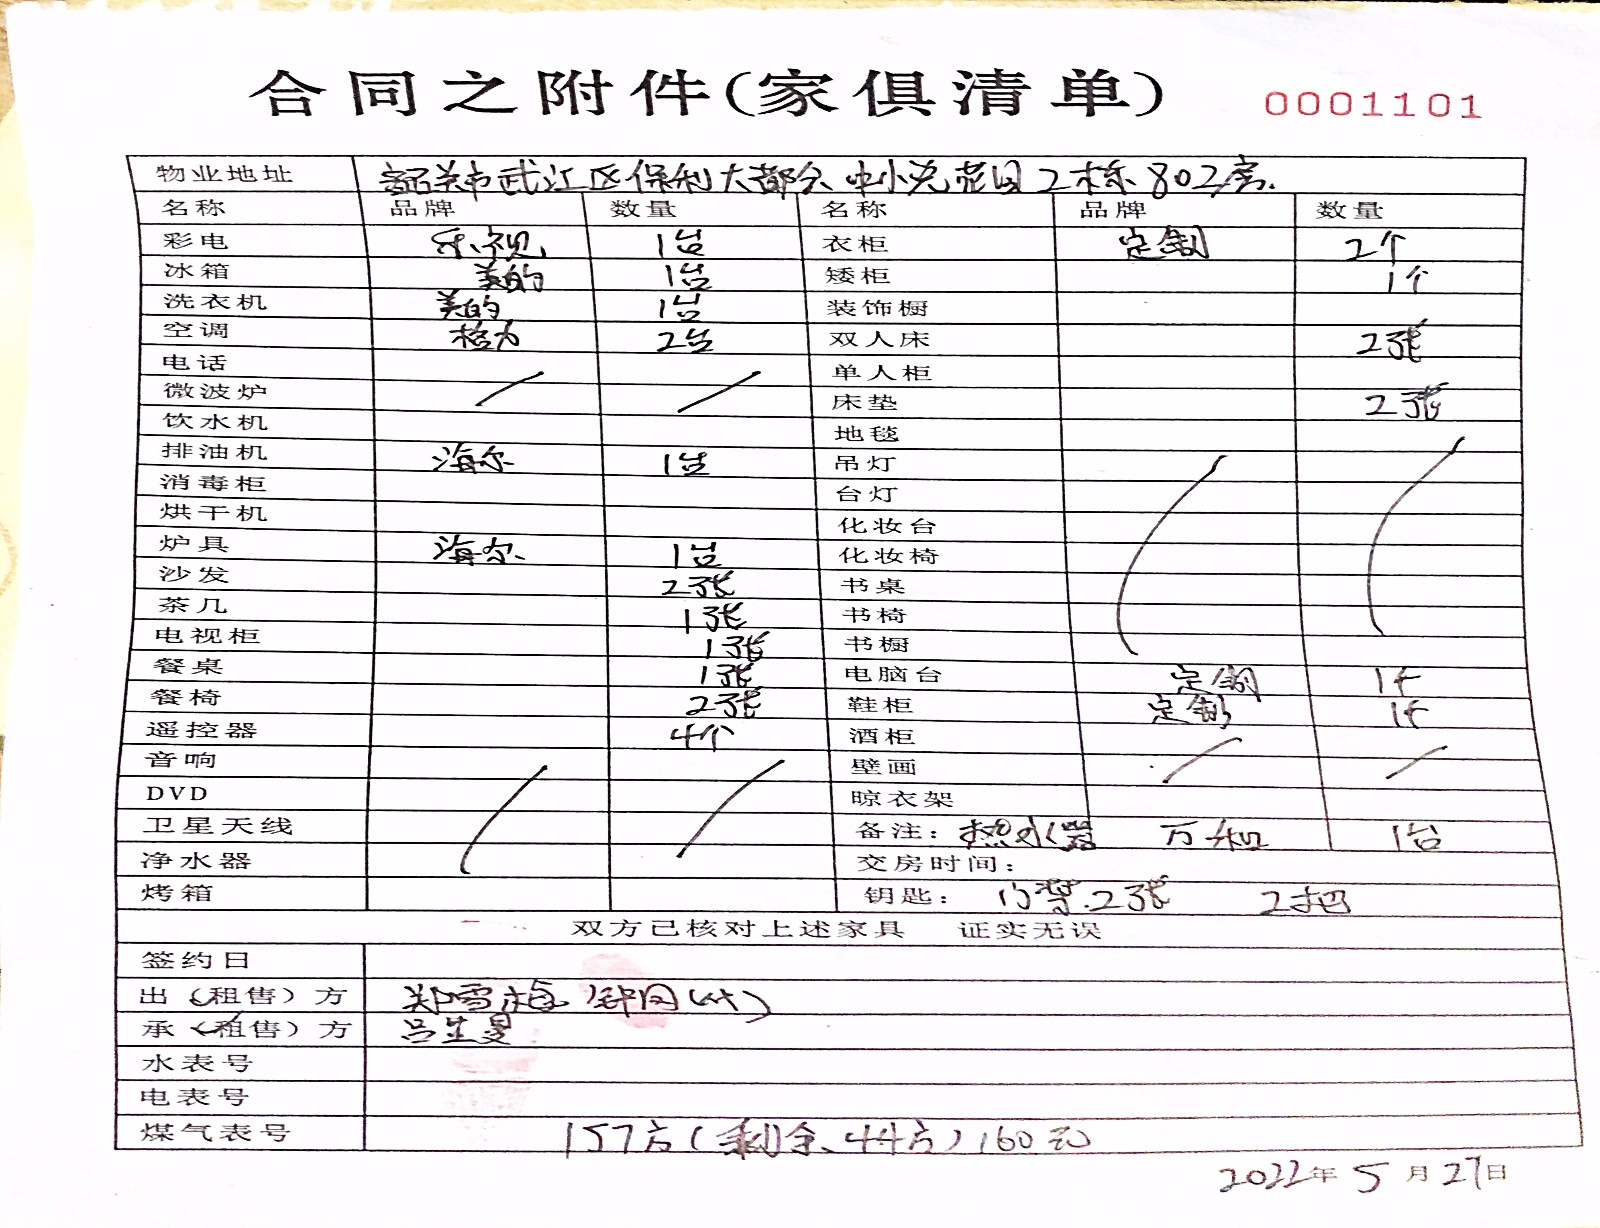 合同之附件(家俱清单) 0001101
物业地址 韶关市武江区保利大都会中心花园2栋802房.
名称 品牌 数量 名称 品牌 数量
彩电 乐视 1台 衣柜 定制 2个
冰箱 美的 1台 矮柜 1个
洗衣机 美的 1台 装饰橱
空调 格力 2台 双人床 2张
电话 单人柜
微波炉 / / 床垫 2张
饮水机 地毯
排油机 海尔 1台 吊灯
消毒柜 台灯
烘干机 化妆台
炉具 海尔 1台 化妆椅
沙发 2张 书桌
茶几 1张 书椅
电视柜 1张 书橱
餐桌 1张 电脑台 定制 1个
餐椅 2张 鞋柜 定制 1个
遥控器 4个 酒柜
音响 壁画
DVD 晾衣架
卫星天线 备注: 热水器 万和 1台
净水器 交房时间:
烤箱 钥匙: 门禁.2张 2把
双方已核对上述家具 证实无误
签约日
出(租售)方 郑雪梅 (代)
承(租售)方
水表号
电表号
煤气表号 157方(剩余、44方)160元
2022年5月27日